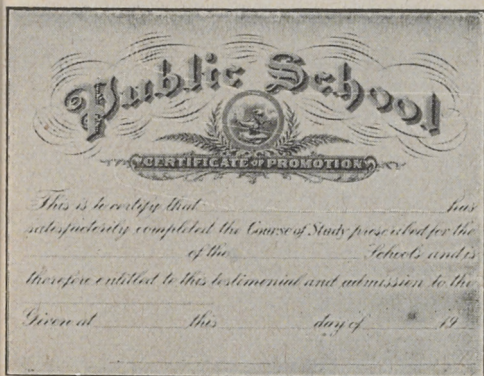 Public School
CERTIFICATE OF PROMOTION
This is to certify that has
satisfactorily completed the Course of Study prescribed for the
of the Schools and is
therefore entitled to this testimonial and admission to the
Given at this day of 19